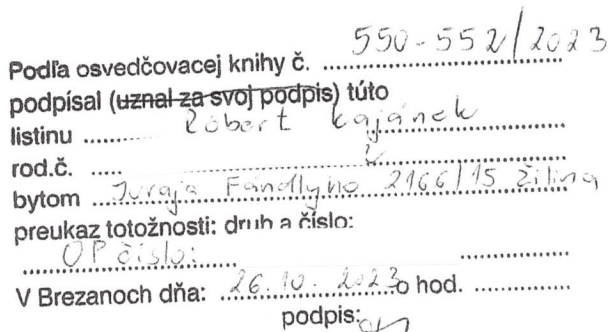 Podľa osvedčovacej knihy č. 550-552/2023
podpísal (uznal za svoj podpis) túto
listinu Róbert Kajánek
rod.č.
bytom Juraja Fándlyho 2166/15 Žilina
preukaz totožnosti: druh a číslo:
OP číslo:
V Brezanoch dňa: 26.10.2023 o hod.
podpis: